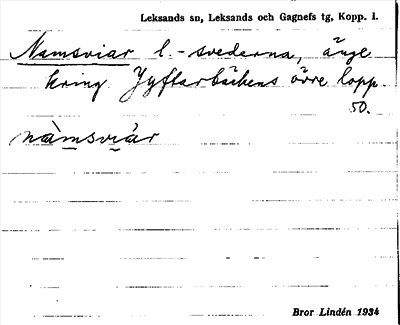 Leksands sn, Leksands och Gagnefs tg, Kopp. l.
Namsviar l. -svederna, änge
kring Jyftarbäckens övre lopp.
50.
nàmsvıàr
Bror Lindén 1934